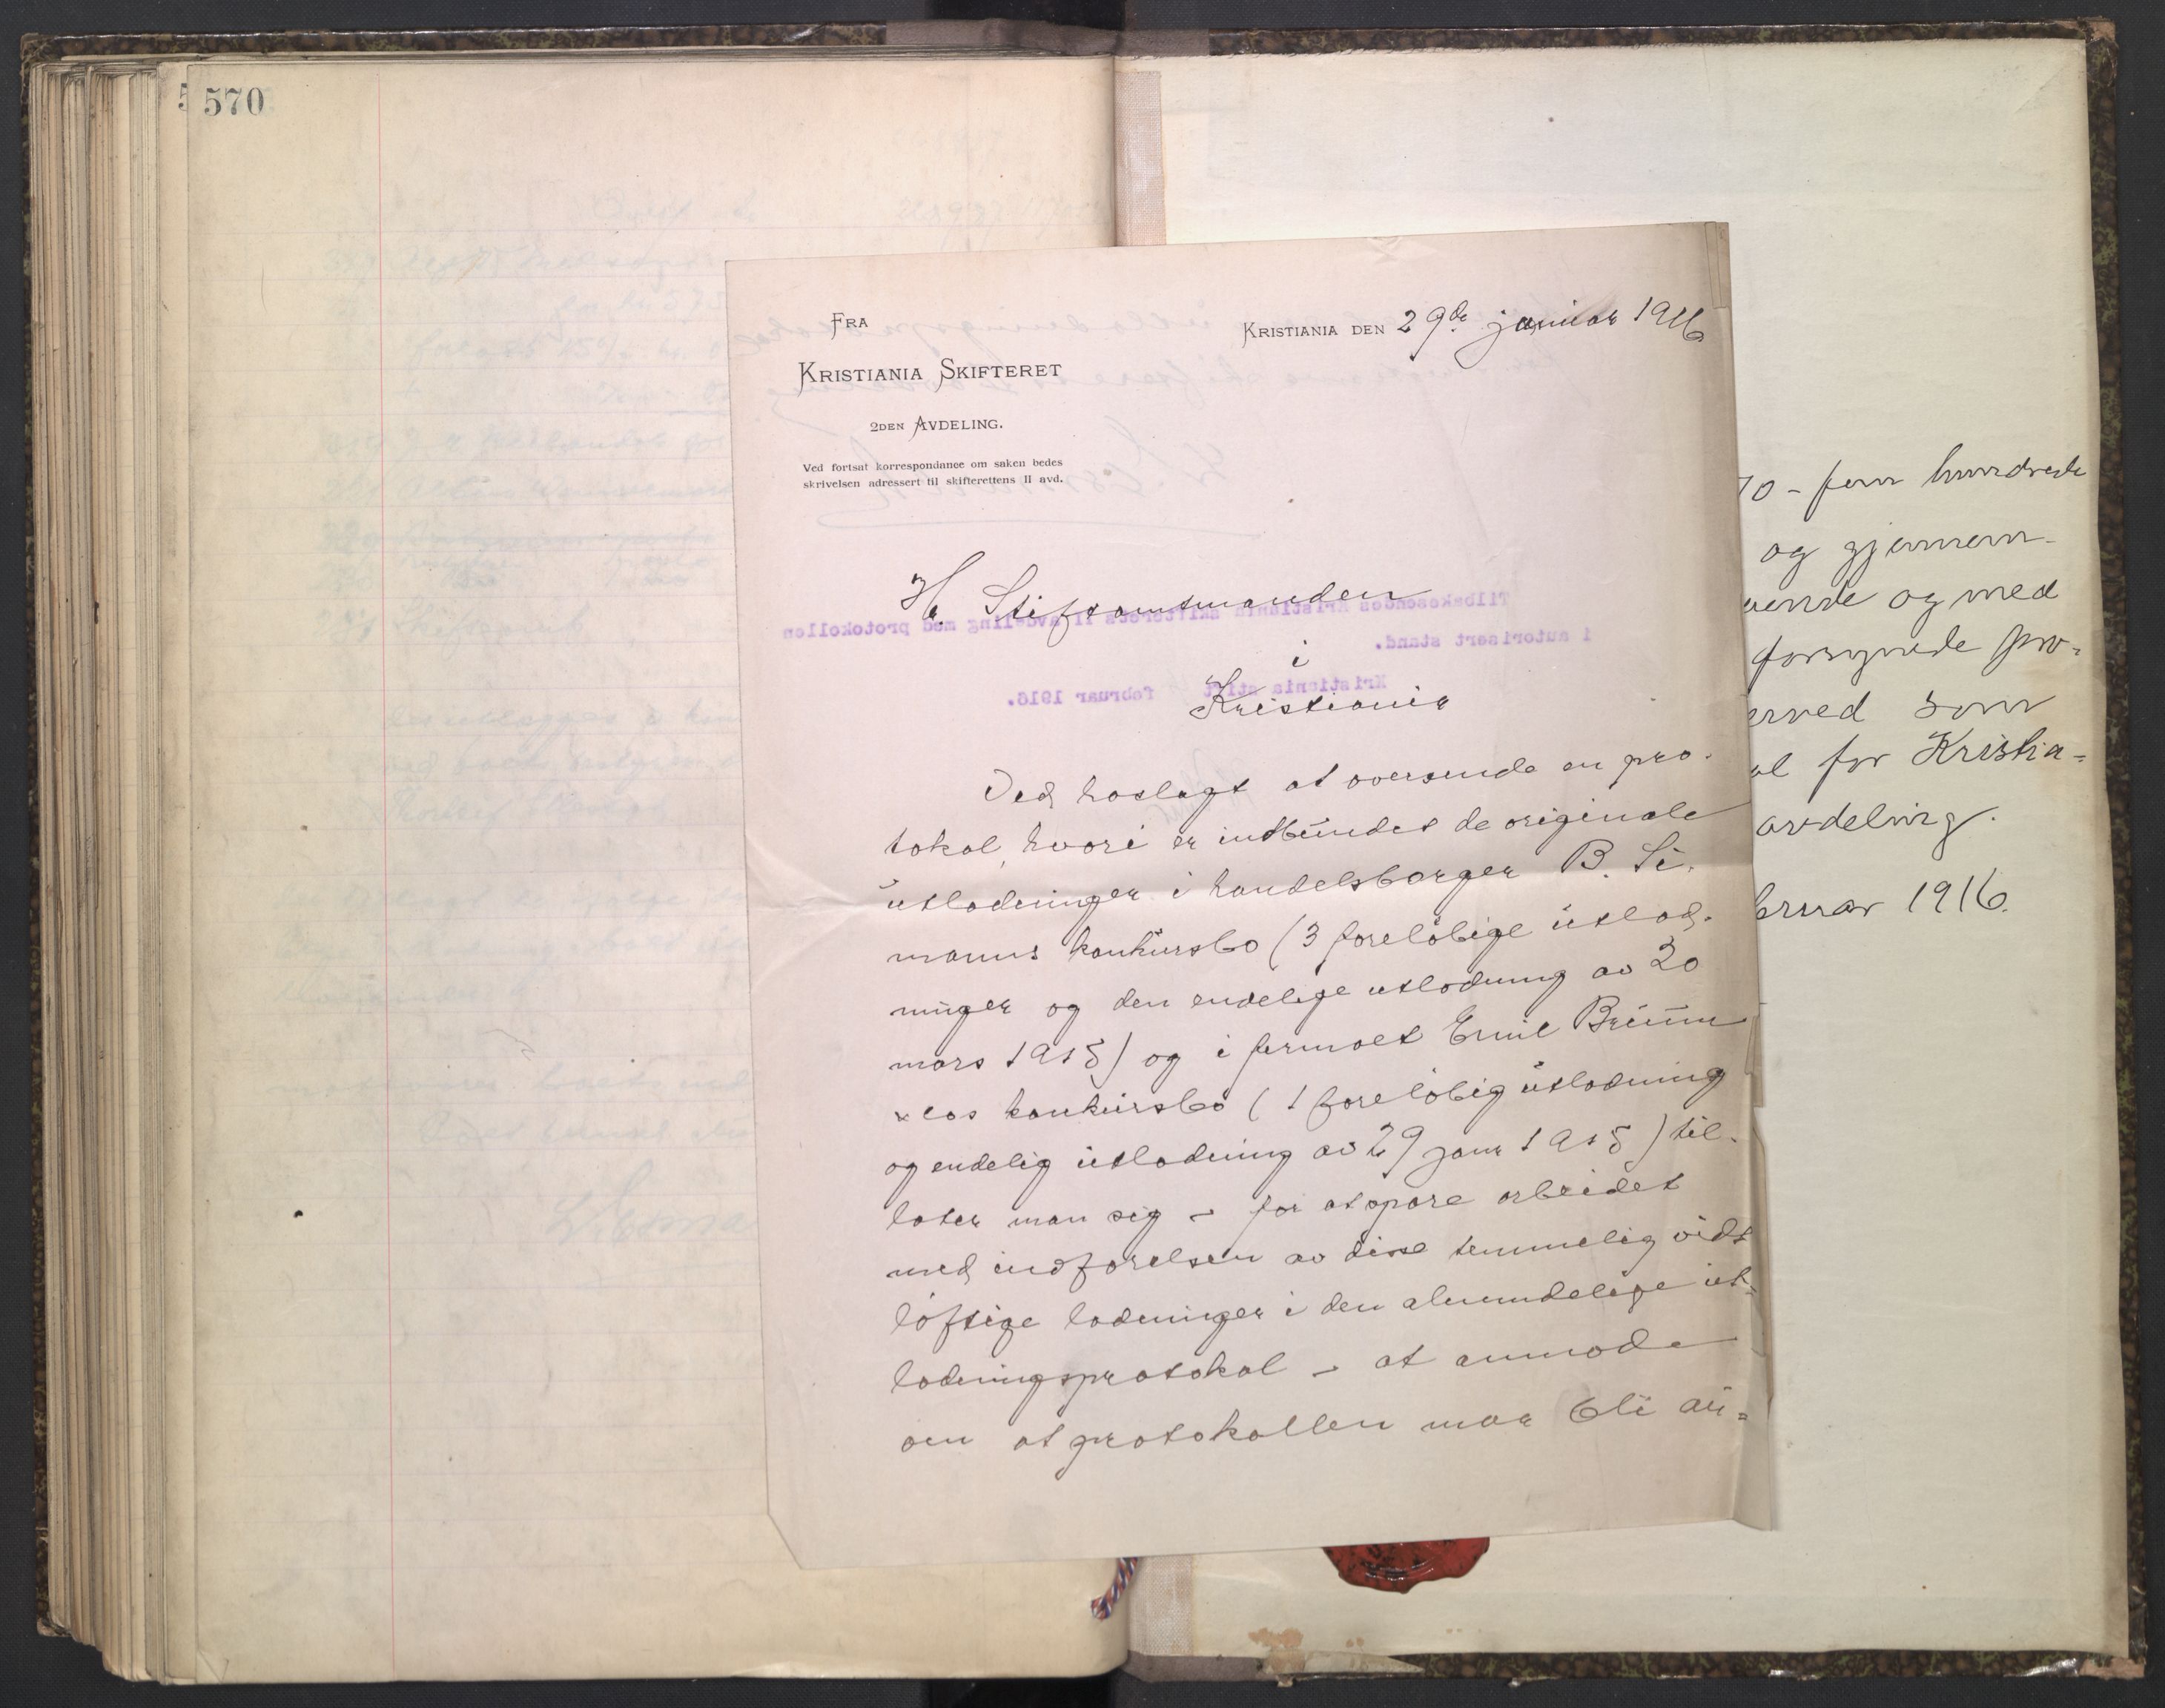 570
FRA
KRISTIANIA SKIFTERET
2DEN AVDELING.
Ved fortsat korrespondance om saken bedes
skrivelsen adressert til skifterettens II avd.
KRISTIANIA DEN 29de januar 1916
Hr. Stiftamtmanden
i
Kristiania
Tilbakesendes Kristiania skifterets II avdeling med protokollen
i autorisert stand.
Kristiania stift februar 1916.
Ved hoslagt at oversende en pro-
tokol, hvori er indbundet de originale
utlodninger i handelsborger B. Si-
manns konkursbo (3 foreløbige utlod-
ninger og den endelige utlodning av 20
mars 1915) og i firmaet Emil Bruun
& cos konkursbo (1 foreløbig utlodning
og endelig utlodning av 29 janr 1915) til-
later man sig - for at spare arbeidet
med indførelsen av disse temmelig vidt-
løftige lodninger i den almindelige ut-
lodningsprotokol - at anmode
om at protokollen maa bli au-
70 - fem hundrede
og gjennem-
og med
forsynede pro-
erved som
al for Kristia-
avdeling.
bruar 1916.